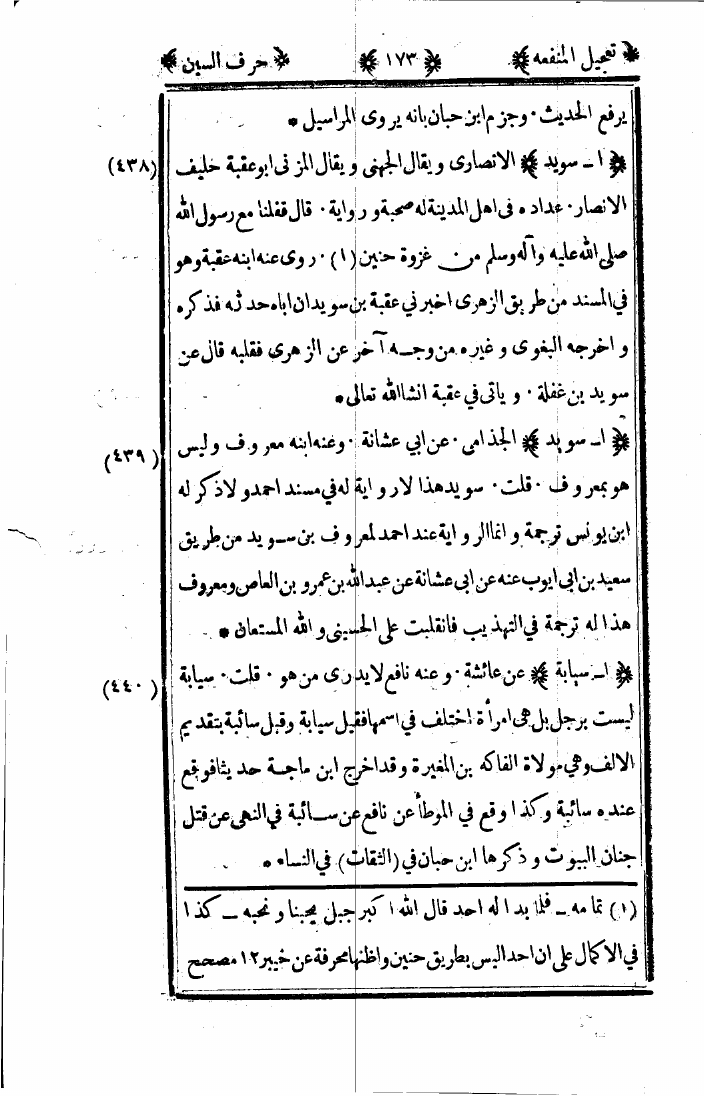 ﴿ تعجيل المنفعه ﴾ ﴿ ١٧٣ ﴾ ﴿ حرف السين ﴾
يرفع الحديث ٠ وجزم ابن حبان بانه يروى المراسيل *
(٤٣٨) ﴿ ا ـ سويد ﴾ الانصارى و يقال الجهنى و يقال المزنى ابو عقبة حليف
الانصار ٠ عداده فى اهل المدينة له صحبة و رواية ٠ قال قفلنا مع رسول الله
صلى الله عليه وآله وسلم من غزوة حنين (١) ٠ روى عنه ابنه عقبة وهو
في المسند من طريق الزهرى اخبرني عقبة بن سويد ان اباه حدثه فذكره
و اخرجه البغوى و غيره من وجه آخر عن الزهرى فقلبه قال عن
سويد بن غفلة ٠ و ياتى في عقبة انشاالله تعالى *
(٤٣٩) ﴿ ا ـ سويد ﴾ الجذامى ٠ عن ابي عشانة ٠ وعنه ابنه معروف وليس
هو بمعروف ٠ قلت ٠ سويد هذا لا رواية له في مسند احمد و لا ذكر له
ابن يونس ترجمة و انما الرواية عند احمد لمعروف بن سويد من طريق
سعيد بن ابى ايوب عنه عن ابى عشانة عن عبدالله بن عمرو بن العاص و معروف
هذا له ترجمة في التهذيب فانقلبت على الحسيني و الله المستعان *
(٤٤٠) ﴿ ا ـ سيابة ﴾ عن عائشة ٠ و عنه نافع لايدرى من هو ٠ قلت ٠ سيابة
ليست برجل بل هى امرأة اختلف في اسمها فقيل سيابة وقيل سائبة بتقديم
الالف وهي مولاة الفاكه بن المغيرة و قد اخرج ابن ماجة حديثا فوقع
عنده سائبة وكذا وقع في الموطأ عن نافع عن سائبة في النهى عن قتل
جنان البيوت و ذكرها ابن حبان في (الثقات) في النساء *
(١) تمامه ـ فلما بدا له احد قال الله اكبر جبل يحبنا و نحبه ـ كذا
في الاكمال على ان احد اليس بطريق حنين واظنها محرفة عن خيبر ١٢ مصحح